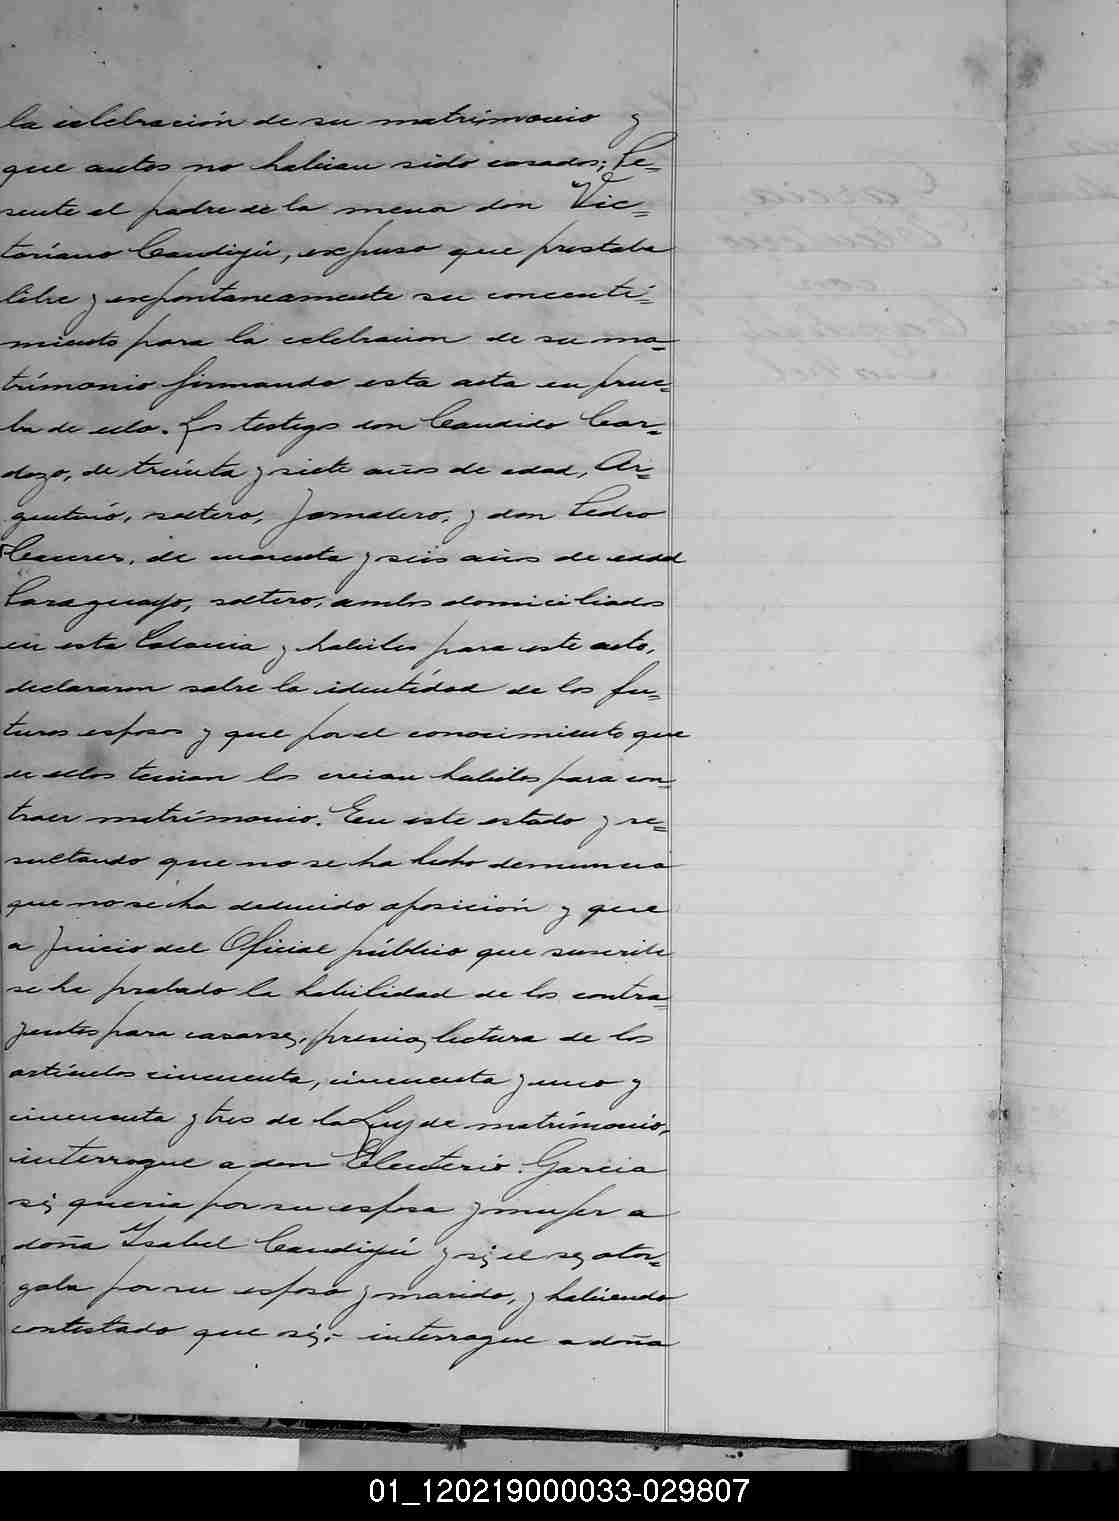 la celebración de su matrimonio y
que antes no habian sido casados; Pre-
sente el padre de la menor don Vic=
toriano Candiyú, expuso que prestaba
libre y expontaneamente su concenti=
miento para la celebracion de su ma=
trimonio firmando esta acta en prue=
ba de ello. Los testigos don Candido Car=
dozo, de treinta y siete años de edad, Ar=
gentino, soltero, Jornalero, y don Pedro
de cuarenta y seis años de edad
Paraguayo, soltero, ambos domiciliados
en esta Colonia y habiles para este acto,
declararon sobre la identidad de los fu=
turos esposos y que por el conocimiento que
de ellos tenian los creian habiles para con=
traer matrimonio. En este estado y re=
sultando que no se ha hecho denuncia
que no se ha deducido oposición y que
a Juicio del Oficial público que suscribe
se ha probado la habilidad de los contra=
yentes para casarse, previa lectura de los
articulos cincuenta, cincuenta y uno y
cincuenta y tres de la Ley de matrimonio,
interrogue a don Eleuterio Garcia
si queria por su esposa y mujer a
doña Isabel Candiyú y si el se otor=
gaba por su esposo y marido, y habiendo
contestado que si,- interrogue a doña
01_120219000033-029807